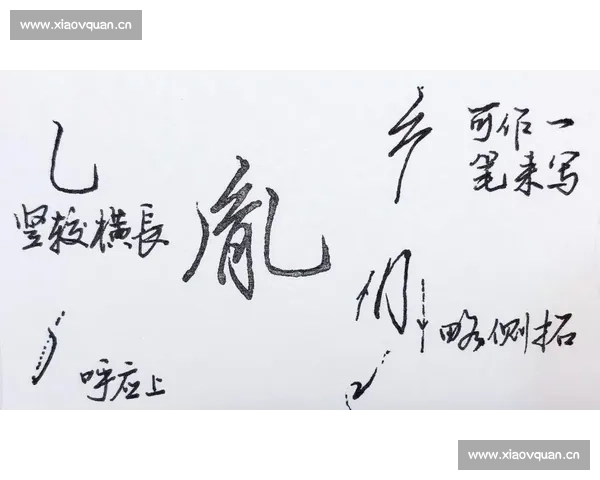 www.xiaovquan.cn
乚
竖较横長
呼应上
胤
幺
可作一
笔来写
略侧拓
www.xiaovquan.cn